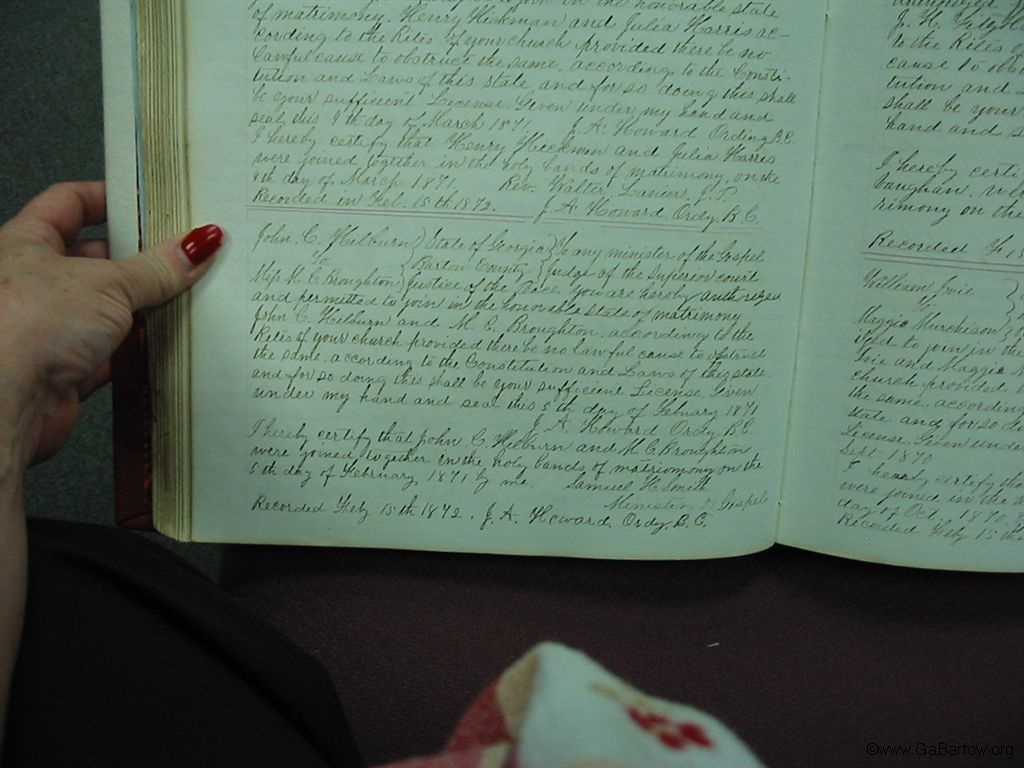 of matrimony. Henry Hickman and Julia Harris ac-
cording to the Rites of your church provided there be no
lawful cause to obstruct the same. according to the Consti-
tution and Laws of this state and for so doing this shall
be your sufficient License. Given under my hand and
seal this 9th day of March 1871. J. A. Howard Ording B.C.
I hereby certify that Henry Hickman and Julia Harris
were joined together in the holy bands of matrimony on the
9th day of March 1871. Rev. Walter Lanier, J. P.
Recorded in Feb. 15th 1872. J. A. Howard, Ordy, B. C.
John. C. Hilburn } State of Georgia } To any minister of the Gospel
To { Bartow County { Judge of the Superior court
Miss M. C. Broughton Justice of the Peace. You are hereby authorized
and permitted to join in the honorable State of matrimony
John C. Hilburn and M. C. Broughton. according to the
Rites of your church provided there be no lawful cause to obstruct
the same. according to the Constitution and Laws of this state
and for so doing this shall be your sufficient License. Given
under my hand and seal this 5th day of Febuary 1871
J. A. Howard Ordy B.C.
I hereby certify that John C. Hilburn and M. C. Broughton
were joined together in the holy bands of matrimony on the
5th day of February, 1871 by me. Samuel H. Smith
Minister of Gospel
Recorded Feby 15th 1872. J. A. Howard, Ordy, B. C.
to the Rites of
cause to
tution and
shall be your
hand and
I hereby certi
rimony on the
Recorded
William
To
Maggie Murchison
to join in the
and Maggie
church provided
the same, according
state and for so do
License. Given under
Sept 1870
I hereby certify tha
were joined in the
day of Oct. 1870
Recorded Feby 15th
©www.GaBartow.org